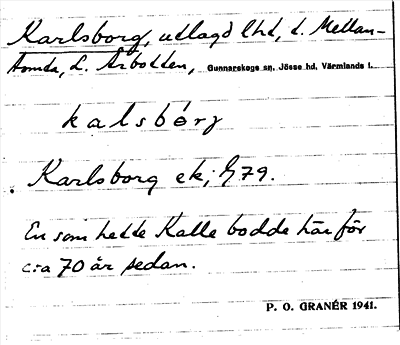 Karlsborg, utlagd lhd, t. Mellan-
tomta, L. Årbotten, Gunnarskogs sn, Jösse hd, Värmlands l.
kalsbórj
Karlsborg ek; G79.
En som hette Kalle bodde här för
c:a 70 år sedan.
P. O. GRANÉR 1941.